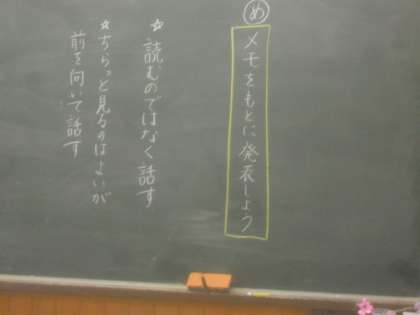 め
メモをもとに発表しよう
☆読むのではなく話す
☆ちらっと見るのはよいが
前を向いて話す